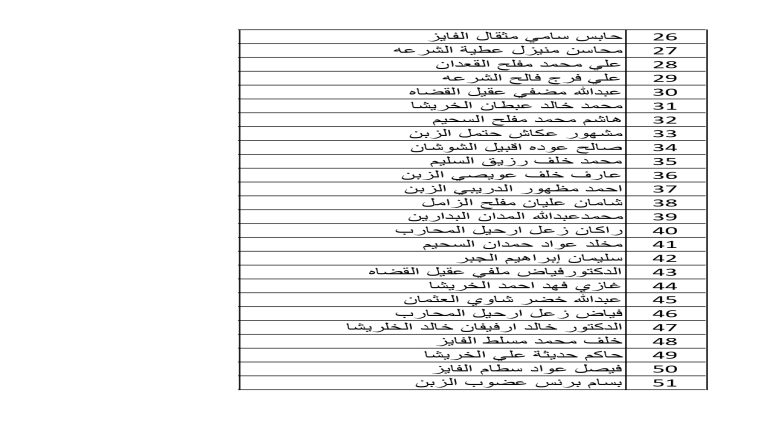 26 حابس سامي مثقال الفايز
27 محاسن منيزل عطية الشرعه
28 علي محمد مفلح القعدان
29 علي فرج فالح الشرعه
30 عبدالله مضفي عقيل القضاه
31 محمد خالد عبطان الخريشا
32 هاشم محمد مفلح السحيم
33 مشهور عكاش حتمل الزبن
34 صالح عوده اقبيل الشوشان
35 محمد خلف رزيق السليم
36 عارف خلف عويصي الزبن
37 احمد مظهور الدريبي الزبن
38 شامان عليان مفلح الزامل
39 محمدعبدالله المدان البدارين
40 راكان زعل ارحيل المحارب
41 مخلد عواد حمدان السحيم
42 سليمان إبراهيم الجبر
43 الدكتورفياض ملفي عقيل القضاه
44 غازي فهد احمد الخريشا
45 عبدالله خضر شاوي العثمان
46 فياض زعل ارحيل المحارب
47 الدكتور خالد ارفيفان خالد الخلريشا
48 خلف محمد مسلط الفايز
49 حاكم حديثة علي الخريشا
50 فيصل عواد سطام الفايز
51 بسام برنس عضوب الزبن